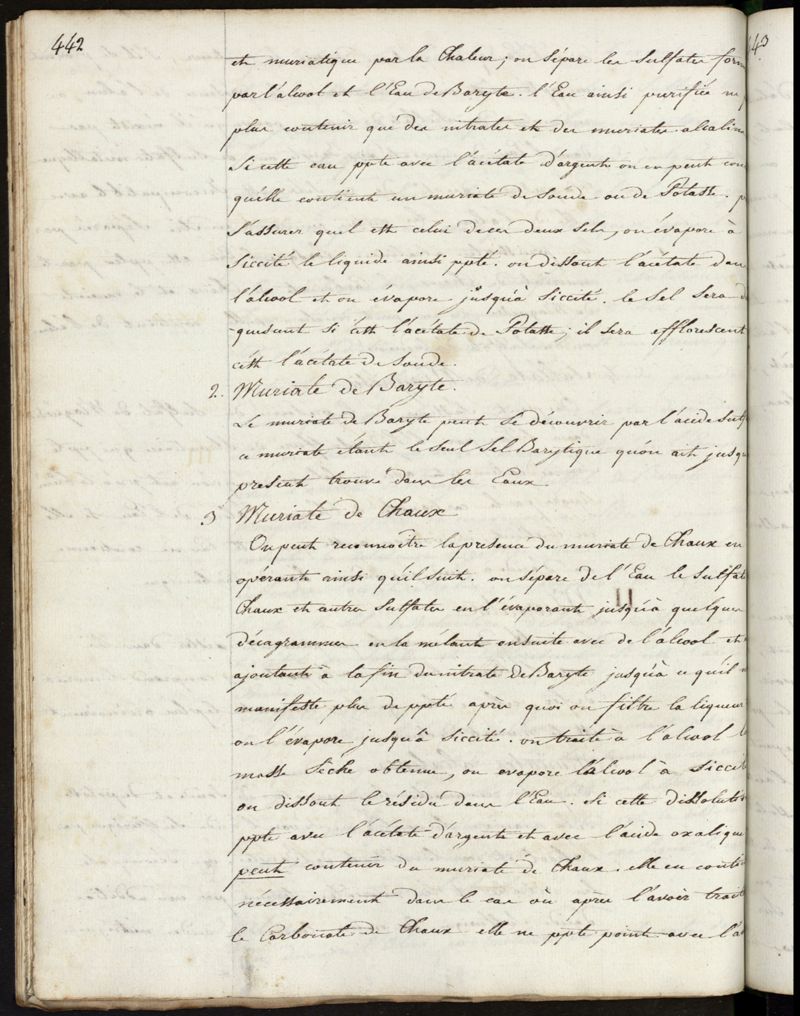 442
et muriatique par la Chaleur; on sépare les Sulfates form
par l'alcool et l'Eau de Baryte. l'Eau ainsi purifiée ne p
plus contenir que des nitrates et des muriates alcalins
Si cette eau ppte avec l'acétate d'argent on en peut con
qu'elle contient un muriate de Soude ou de Potasse. p
S'assurer quel est celui de ces deux Sels, on évapore à
Siccité le liquide ainsi ppté. on dissout l'acétate dan
l'alcool et on évapore jusqu'à Siccité. le Sel Sera d
quescent Si c'est l'acétate de Potasse; il Sera efflorescent
c'est l'acétate de Soude.
2. Muriate de Baryte.
Le muriate de Baryte peut Se découvrir par l'acide Sulf
ce muriate étant le Seul Sel Barytique qu'on ait jusqu
present trouvé dans les Eaux.
3 Muriate de Chaux
On peut reconnoître la presence du muriate de Chaux en
opérant ainsi qu'il Suit. on Sépare de l'Eau le Sulfat
Chaux et autres Sulfates en l'évaporant jusqu'à quelques
décagrammes en la mêlant ensuite avec de l'alcool et
ajoutant à la fin du nitrate de Baryte jusqu'à ce qu'il n
manifeste plus de ppté après quoi on filtre la liqueur
on l'évapore jusqu'à Siccité. on traite à l'alcool l
masse Sèche obtenue, on evapore l'alcool à Siccit
on dissout le résidu dans l'Eau. Si cette dissolut
ppte avec l'acétate d'argent et avec l'acide oxalique
peut contenir du muriate de Chaux. elle en contie
nécessairement dans le cas où après l'avoir trait
le Carbonate de Chaux elle ne ppte point avec l'a